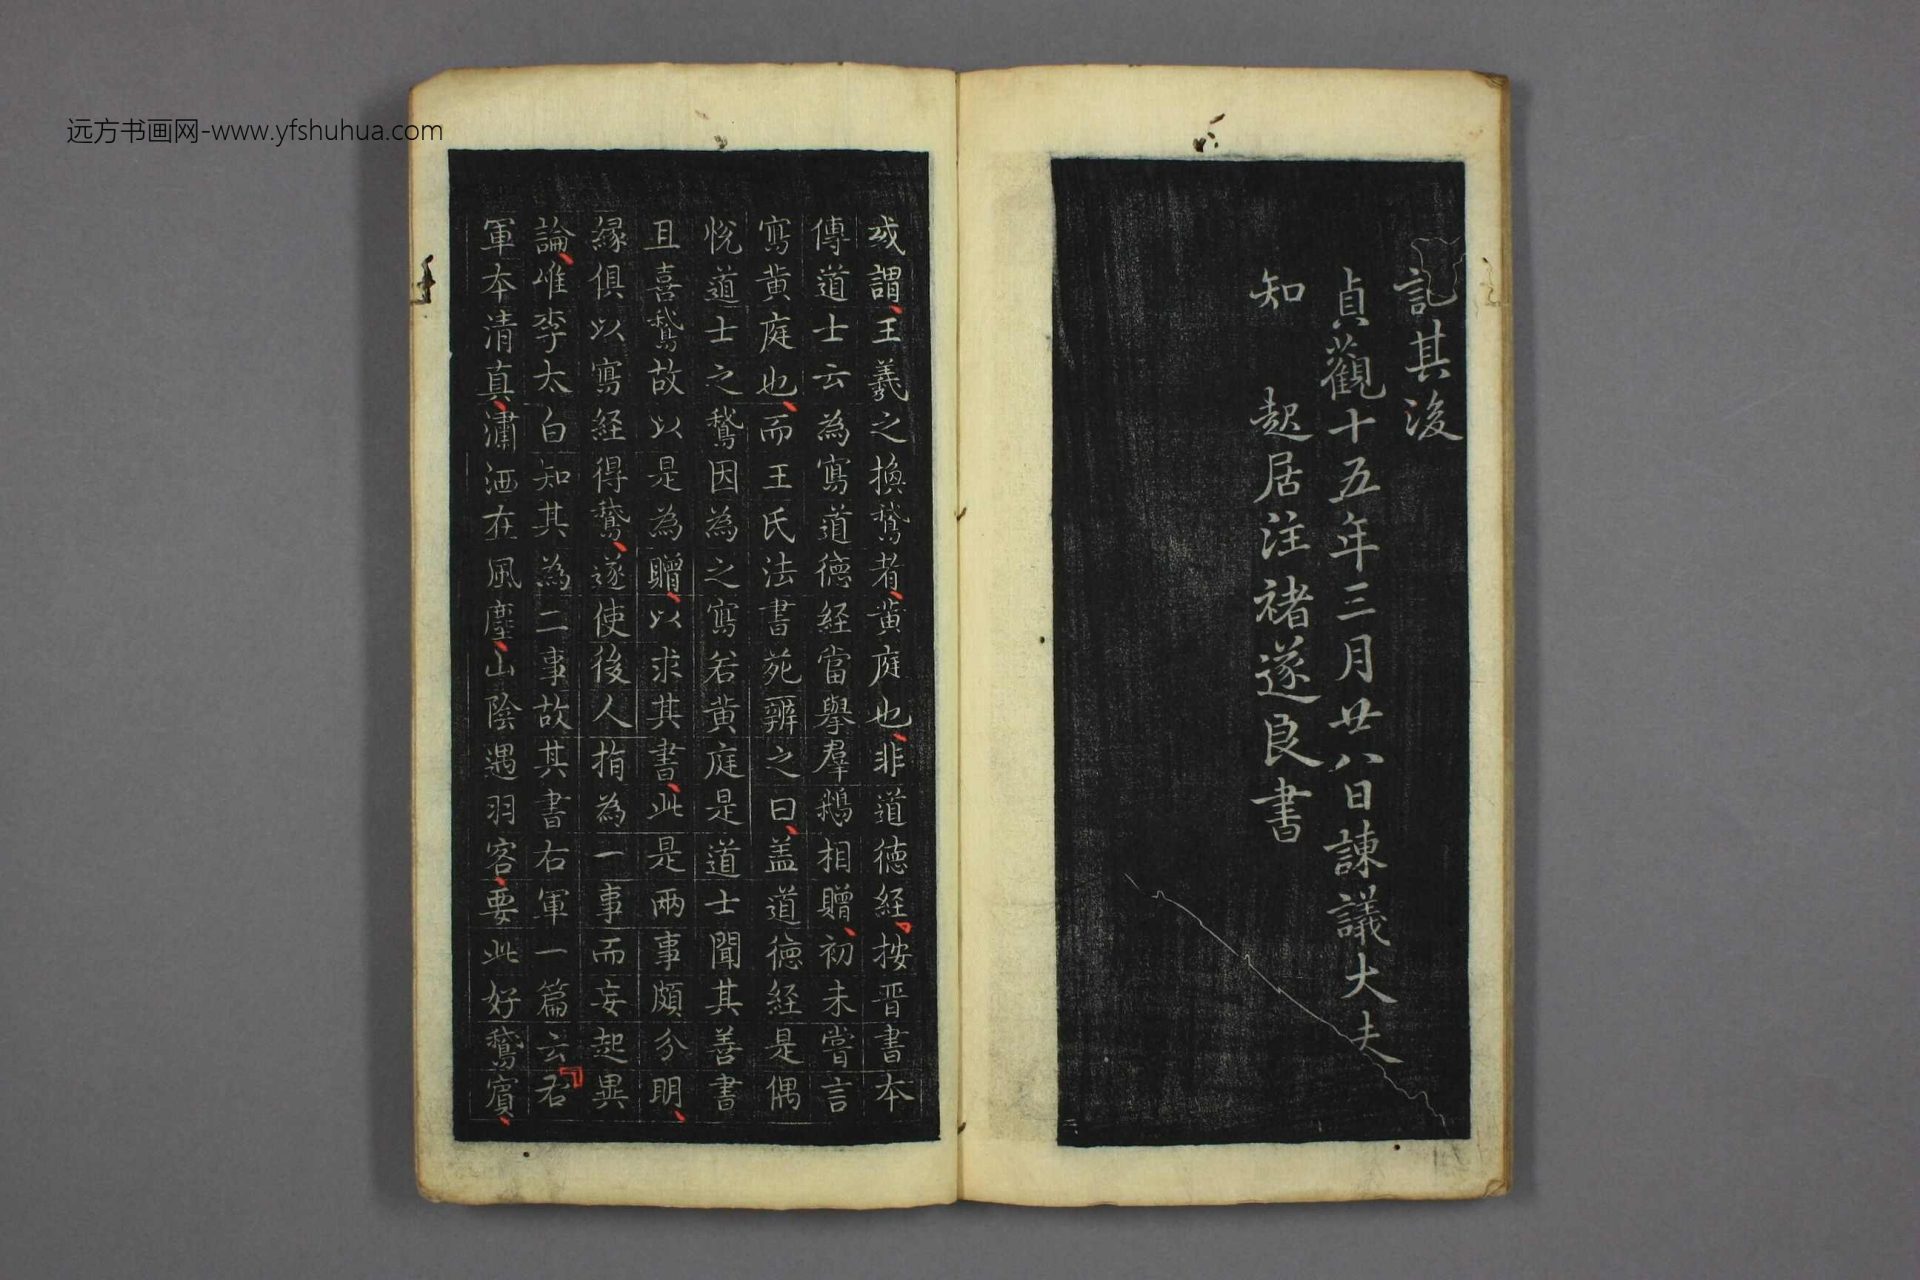 远方书画网-www.yfshuhua.com
記其後
貞觀十五年三月廿八日諫議大夫
知　起居注褚遂良書
或謂王羲之換鵞者黄庭也非道德經按晋書本
傳道士云為寫道德經當舉羣鵝相贈初未嘗言
寫黄庭也而王氏法書苑辨之曰盖道德經是偶
悅道士之鵞因為之寫若黄庭是道士聞其善書
且喜鵞故以是為贈以求其書此是兩事頗分明
縁俱以寫經得鵞遂使後人指為一事而妄起異
論唯李太白知其為二事故其書右軍一篇云右
軍本清真瀟洒在風塵山陰遇羽客要此好鵞賓